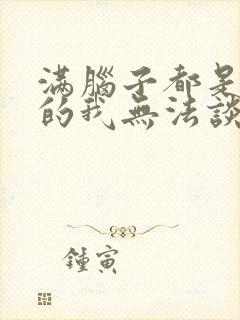 滿腦子都是
的我無法談
鍾寅